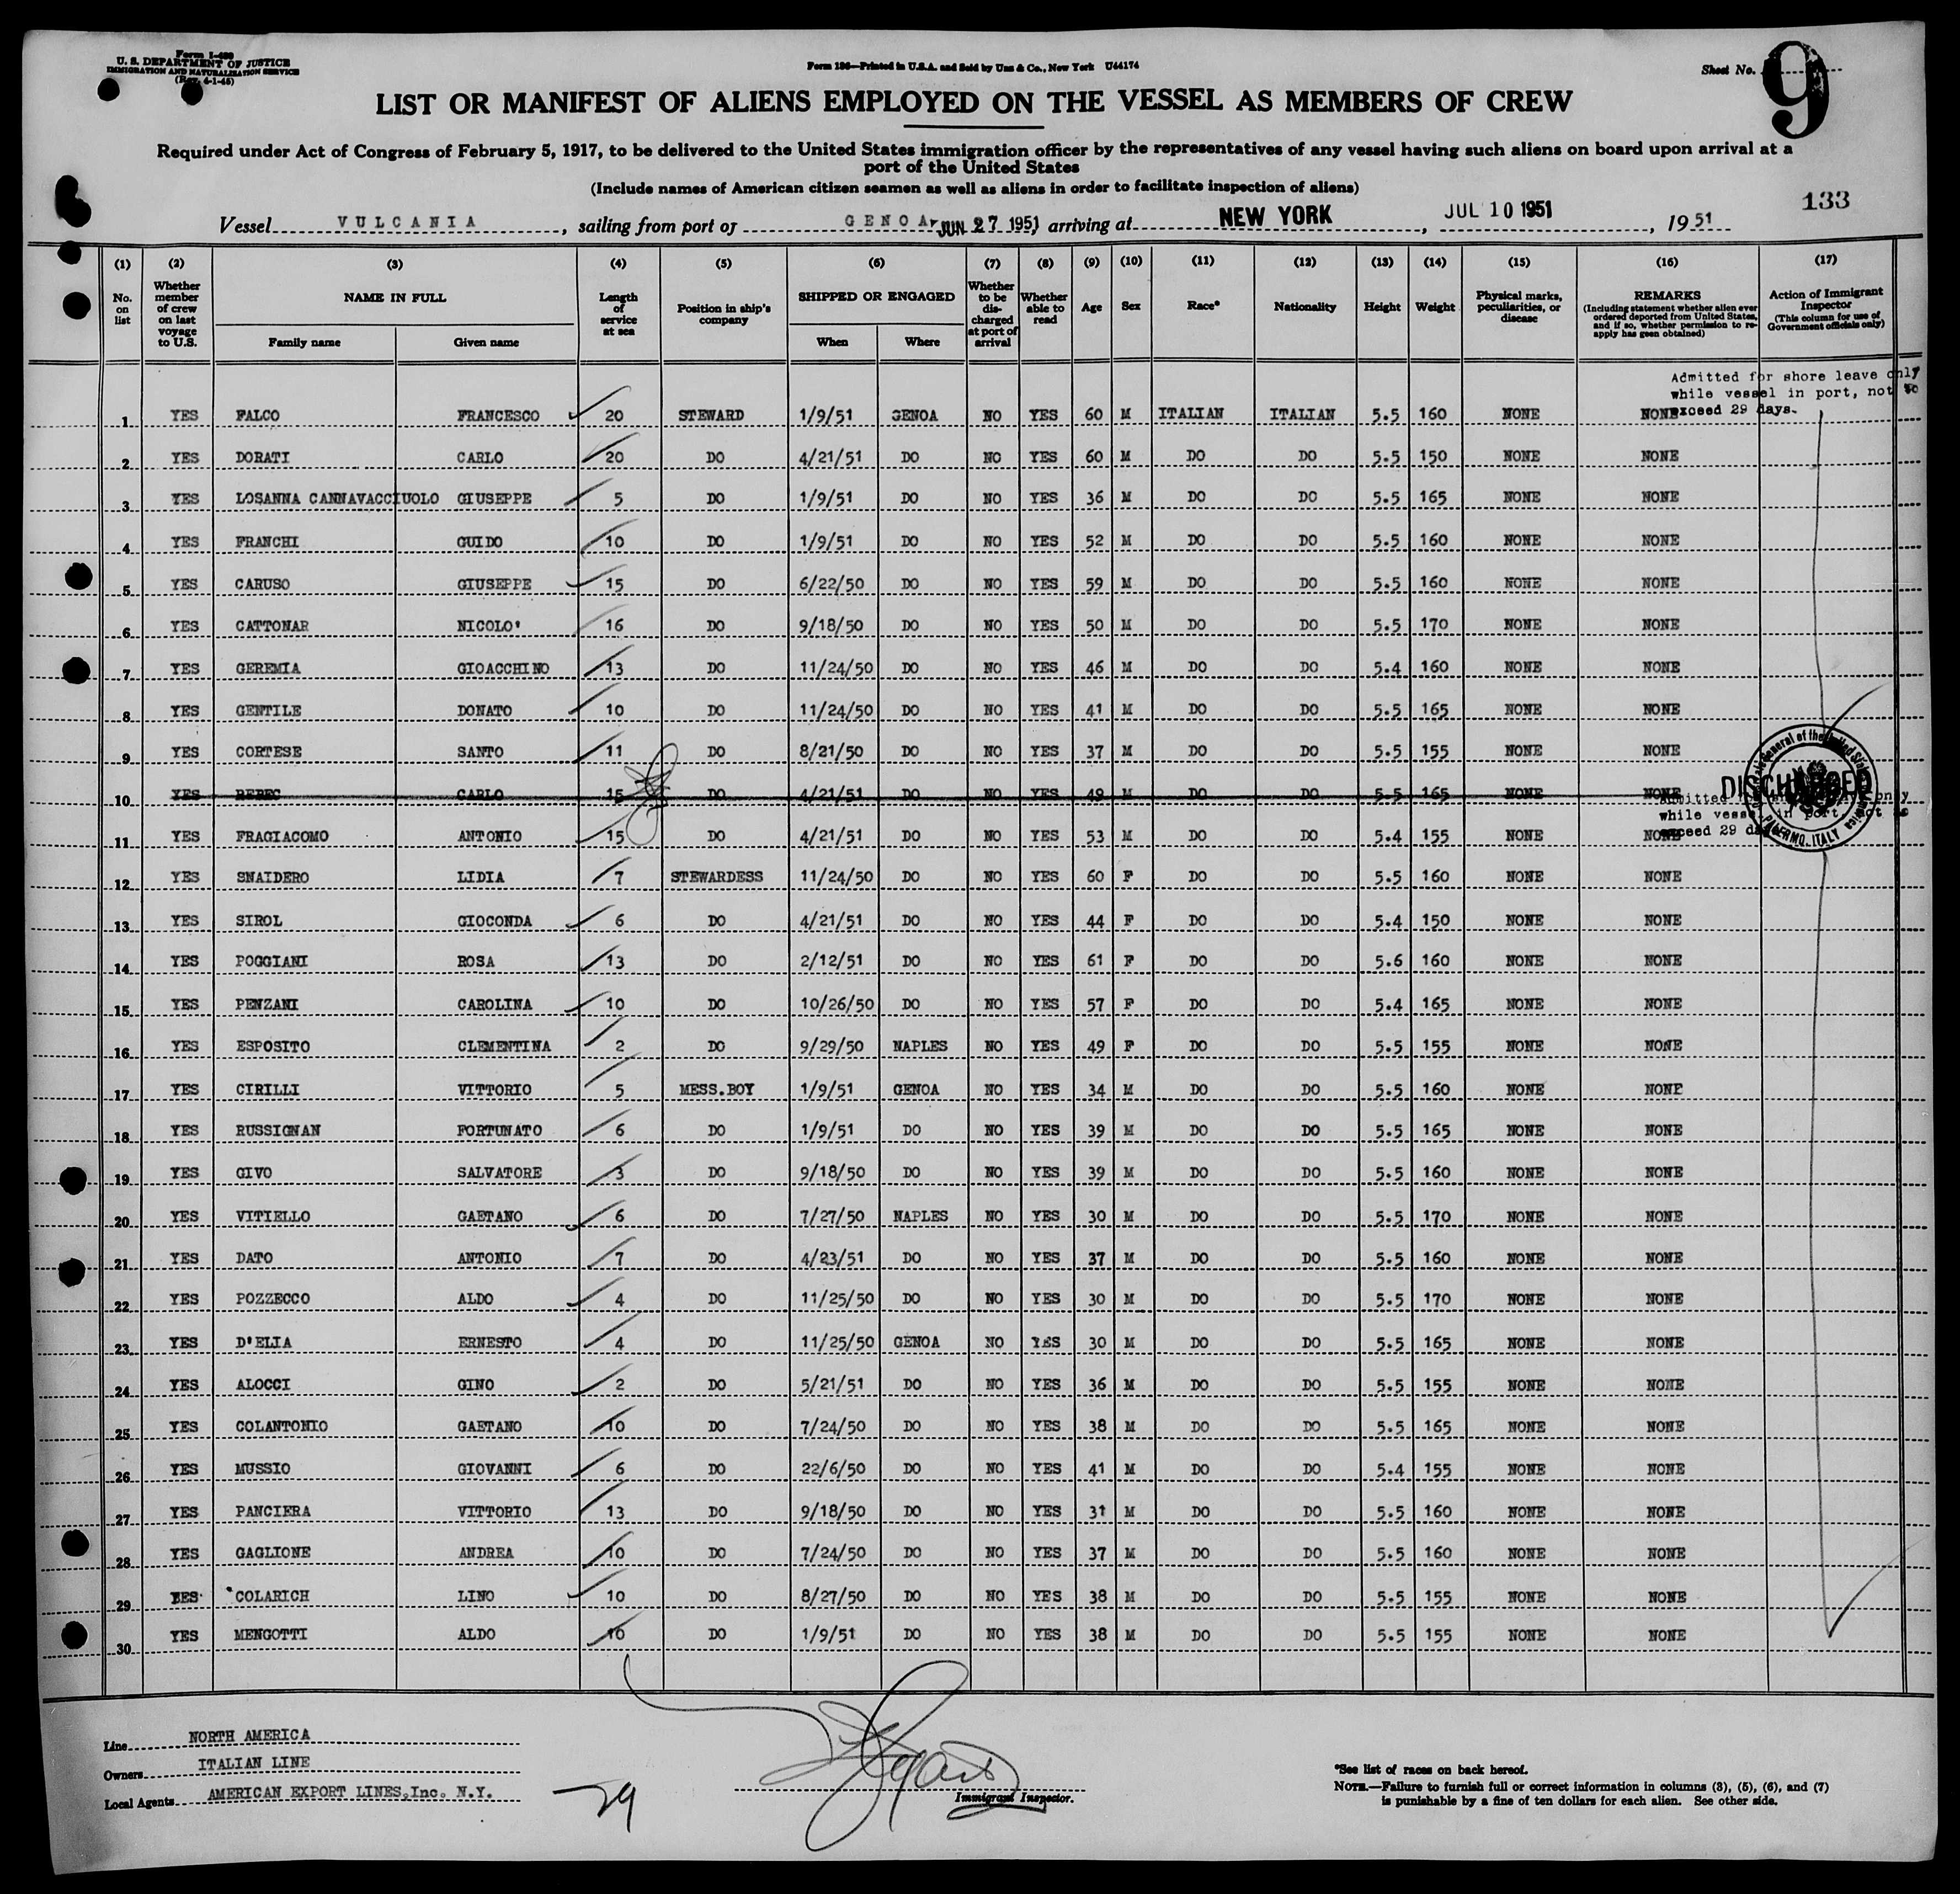 Form I-489
U. S. DEPARTMENT OF JUSTICE
IMMIGRATION AND NATURALIZATION SERVICE
(Rev. 4-1-45)
Form 136—Printed in U.S.A. and Sold by Unz & Co., New York U44174
Sheet No. 9
LIST OR MANIFEST OF ALIENS EMPLOYED ON THE VESSEL AS MEMBERS OF CREW
Required under Act of Congress of February 5, 1917, to be delivered to the United States immigration officer by the representatives of any vessel having such aliens on board upon arrival at a
port of the United States
(Include names of American citizen seamen as well as aliens in order to facilitate inspection of aliens)
133
Vessel VULCANIA, sailing from port of GENOA JUN 27 1951, arriving at NEW YORK, JUL 10 1951, 1951
(1) (2) (3) (4) (5) (6) (7) (8) (9) (10) (11) (12) (13) (14) (15) (16) (17)
No. on list
Whether member of crew on last voyage to U.S.
NAME IN FULL
Family name Given name
Length of service at sea
Position in ship's company
SHIPPED OR ENGAGED
When Where
Whether to be discharged at port of arrival
Whether able to read
Age
Sex
Race*
Nationality
Height
Weight
Physical marks, peculiarities, or disease
REMARKS
(Including statement whether alien ever ordered deported from United States, and if so, whether permission to re-apply has geen obtained)
Action of Immigrant Inspector
(This column for use of Government officials only)
Admitted for shore leave only
while vessel in port, not to
exceed 29 days.
1 YES FALCO FRANCESCO 20 STEWARD 1/9/51 GENOA NO YES 60 M ITALIAN ITALIAN 5.5 160 NONE NONE
2 YES DORATI CARLO 20 DO 4/21/51 DO NO YES 60 M DO DO 5.5 150 NONE NONE
3 YES LOSANNA CANNAVACCIUOLO GIUSEPPE 5 DO 1/9/51 DO NO YES 36 M DO DO 5.5 165 NONE NONE
4 YES FRANCHI GUIDO 10 DO 1/9/51 DO NO YES 52 M DO DO 5.5 160 NONE NONE
5 YES CARUSO GIUSEPPE 15 DO 6/22/50 DO NO YES 59 M DO DO 5.5 160 NONE NONE
6 YES CATTONAR NICOLO' 16 DO 9/18/50 DO NO YES 50 M DO DO 5.5 170 NONE NONE
7 YES GEREMIA GIOACCHINO 13 DO 11/24/50 DO NO YES 46 M DO DO 5.4 160 NONE NONE
8 YES GENTILE DONATO 10 DO 11/24/50 DO NO YES 41 M DO DO 5.5 165 NONE NONE
9 YES CORTESE SANTO 11 DO 8/21/50 DO NO YES 37 M DO DO 5.5 155 NONE NONE
10 YES BEBEC CARLO 15 DO 4/21/51 DO NO YES 49 M DO DO 5.5 165 NONE NONE DISCHARGED
Admitted only
while vessel in port, not to
exceed 29 da
PALERMO, ITALY
11 YES FRAGIACOMO ANTONIO 15 DO 4/21/51 DO NO YES 53 M DO DO 5.4 155 NONE NONE
12 YES SNAIDERO LIDIA 7 STEWARDESS 11/24/50 DO NO YES 60 F DO DO 5.5 160 NONE NONE
13 YES SIROL GIOCONDA 6 DO 4/21/51 DO NO YES 44 F DO DO 5.4 150 NONE NONE
14 YES POGGIANI ROSA 13 DO 2/12/51 DO NO YES 61 F DO DO 5.6 160 NONE NONE
15 YES PENZANI CAROLINA 10 DO 10/26/50 DO NO YES 57 F DO DO 5.4 165 NONE NONE
16 YES ESPOSITO CLEMENTINA 2 DO 9/29/50 NAPLES NO YES 49 F DO DO 5.5 155 NONE NONE
17 YES CIRILLI VITTORIO 5 MESS.BOY 1/9/51 GENOA NO YES 34 M DO DO 5.5 160 NONE NONE
18 YES RUSSIGNAN FORTUNATO 6 DO 1/9/51 DO NO YES 39 M DO DO 5.5 165 NONE NONE
19 YES GIVO SALVATORE 3 DO 9/18/50 DO NO YES 39 M DO DO 5.5 160 NONE NONE
20 YES VITIELLO GAETANO 6 DO 7/27/50 NAPLES NO YES 30 M DO DO 5.5 170 NONE NONE
21 YES DATO ANTONIO 7 DO 4/23/51 DO NO YES 37 M DO DO 5.5 160 NONE NONE
22 YES POZZECCO ALDO 4 DO 11/25/50 DO NO YES 30 M DO DO 5.5 170 NONE NONE
23 YES D'ELIA ERNESTO 4 DO 11/25/50 GENOA NO YES 30 M DO DO 5.5 165 NONE NONE
24 YES ALOCCI GINO 2 DO 5/21/51 DO NO YES 36 M DO DO 5.5 155 NONE NONE
25 YES COLANTONIO GAETANO 10 DO 7/24/50 DO NO YES 38 M DO DO 5.5 165 NONE NONE
26 YES MUSSIO GIOVANNI 6 DO 22/6/50 DO NO YES 41 M DO DO 5.4 155 NONE NONE
27 YES PANCIERA VITTORIO 13 DO 9/18/50 DO NO YES 31 M DO DO 5.5 160 NONE NONE
28 YES GAGLIONE ANDREA 10 DO 7/24/50 DO NO YES 37 M DO DO 5.5 160 NONE NONE
29 YES COLARICH LINO 10 DO 8/27/50 DO NO YES 38 M DO DO 5.5 155 NONE NONE
30 YES MENGOTTI ALDO 10 DO 1/9/51 DO NO YES 38 M DO DO 5.5 155 NONE NONE
Line NORTH AMERICA
Owners ITALIAN LINE
Local Agents AMERICAN EXPORT LINES.Inc. N.Y.
29
Immigrant Inspector.
*See list of races on back hereof.
NOTE.—Failure to furnish full or correct information in columns (3), (5), (6), and (7)
is punishable by a fine of ten dollars for each alien. See other side.